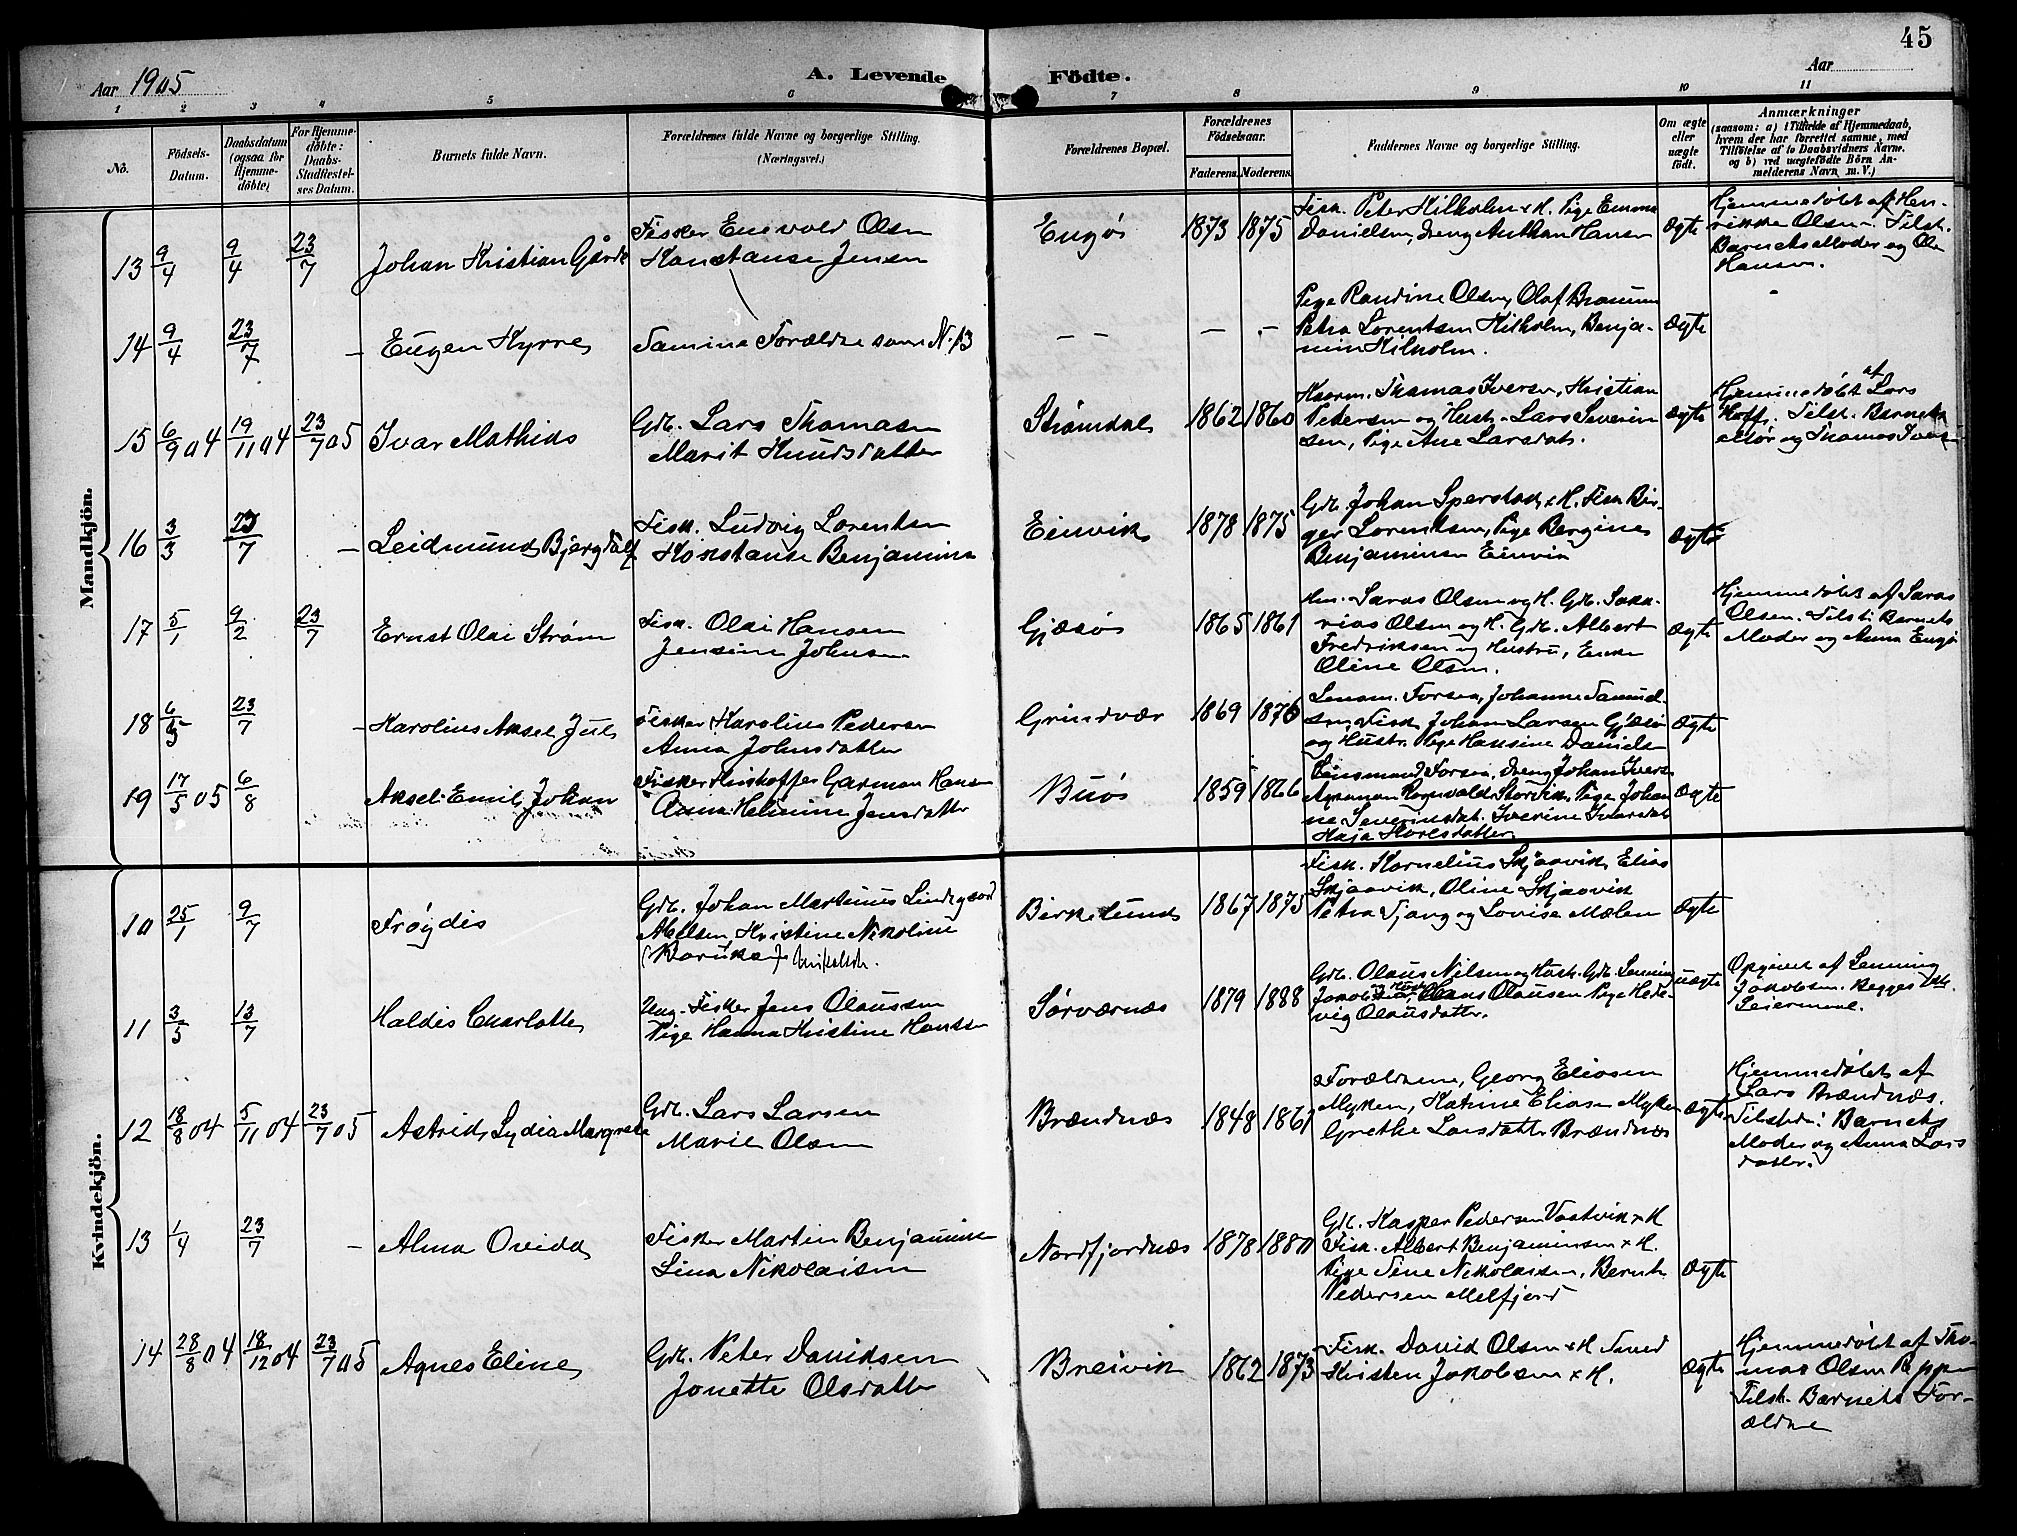 45
Aar 1905
A. Levende Födte.
Aar
1 2 3 4 5 6 7 8 9 10 11
No.
Födsels-Datum.
Daabsdatum (ogsaa for Hjemme-döbte)
For Hjemme-döbte: Daabs-Stadfæstel-ses Datum.
Barnets fulde Navn.
Forældrenes fulde Navne og borgerlige Stilling.
(Næringsvei.)
Forældrenes Bopæl.
Forældrenes Födselsaar.
Faderens. Moderens.
Faddernes Navne og borgerlige Stilling.
Om ægte eller uægte født.
Anmærkninger
(saasom: a) i Tilfælde af Hjemmedaab,
hvem der har forrettet samme, med
Tilföielse af to Daabsvidners Navne.
og b) ved uægtefödte Börn An-
melderens Navn m. V.)
Mandkjön.
13 9/4 9/4 23/7 Johan Kristian
Fisker Enevold Olsen
Konstanse Jensen
Engø 1873 1875
Fisk. Peter Kilholm & H. Pige Emma
Danielsen, Dreng Anthon Hansen
Ægte
Hjemmedøbt af Hen-
rikke Olsen. Tilst.
Barnets Moder og Ole
Hansen.
14 9/4 23/7 - Eugen Kyrre
Samme Forældre som N. 13
- - - -
Pige Randine Olsen, Olaf
Petra Lorentsen Kilholm, Benja-
min Kilholm.
Ægte
-
15 6/9 04 19/11 04 23/7 05 Ivar Mathias
Gdb. Lars Thomasen
Marit Knudsdatter
Strømdal 1862 1860
Thomas Iversen, Kristian
Petersen og Hustr. Lars Severin
sen, Pige Ane Larsdat.
Ægte
Hjemmedøbt af Lars
Hoff. Tilst. Barnets
Mor og Thomas Iversen
16 3/3 23/7 - Leidmund
Fisk. Ludvig Lorentsen
Konstanse Benjamins
Einvik 1878 1875
Gdb. Johan Sperstad & H. Fisk Bir-
ger Lorentsen, Pige Bergine
Benjaminsen Einvik
Ægte
17 5/1 9/2 23/7 Ernst Olai Strøm
Fisk. Olai Hansen
Jensine Johnsen
Gjæsø 1865 1861
Olsen og H. Gdb. Saka-
rias Olsen og H. Gdb. Albert
Fredriksen og Hustru, Enke
Oline Olsen.
Ægte
Hjemmedøbt af
Olsen. Tilst: Barnets
Moder og Anna Engø
18 6/5 23/7 - Karolius Aksel Jul
Fisker Karolius Pedersen
Anna Johnsdatter
Grindvær 1869 1876
Lensm. Forsaa, Johanne Samuel-
sen, Fisk Johan Larsen Gjæsø
og Hustr. Pige Hansine Daniels
Ægte
19 17/5 05 6/8 Aksel Emil Johan
Fisker Kristoffer Garman Hans
Anna Helmine Jensdatter
Buø 1859 1866
Lensmand Forsaa, Dreng Johan Ivers
Rognvald Storvik, Pige Johan
ne Severinsdat. Iverine Ivarsdat
Kaja Karlsdatter
Ægte
Kvindekjön.
10 25/1 9/7 Frøydis
Gdb. Johan Martinus Lindgaard
Abelsen Kristine Nikoline
Birkelund 1867 1875
Fisk. Kornelius Skjaavik, Elias
Skjaavik, Oline Skjaavik
Petra Tjong og Lovise Mælen
Ægte
11 3/5 13/7 Haldis Charlotte
Ung. Fisker Jens Olaussen
Pige Hanna Kristine Hansen
Sørværnæs 1879 1888
Gdb. Olaus Nilsen og Hustr. Gdb. Lenning
Jakobsen og Hustr, Hans Olausen Pige Hede-
vig Olausdatter.
uægte
Opgivet af Lenning
Jakobsen. Begges 1ste
Leiermaal.
12 18/8 04 5/11 04 23/7 05 Astrid Lydia Margrete
Gdb. Lars Larsen
Marie Olsen
Brændnæs 1848 1861
Forældrene, Georg Eliasen
Myken, Katrine Eliasen Myken
Grethe Larsdatter Brændnæs
Ægte
Hjemmedøbt af
Lars Brændnæs.
Tilstede: Barnets
Moder og Anna Lars
datter.
13 1/4 23/7 - Alma Ovida
Fisker Martin Benjaminsen
Lina Nikolaisen
Nordfjordnæs 1878 1880
Gdb. Kasper Pedersen Vaatvik & H
Fisk. Albert Benjaminsen & H.
Pige Sine Nikolaisen, Bernt
Pedersen Melfjord
Ægte
14 28/8 04 18/12 04 23/7 05 Agnes Eline
Gdb. Peter Davidsen
Jonette Olsdatter
Breivik 1862 1873
Fisk. David Olsen & H Smed
Kristen Jakobsen & H.
Ægte
Hjemmedøbt af Tho-
mas Olsen
Tilst. Barnets For-
ældre